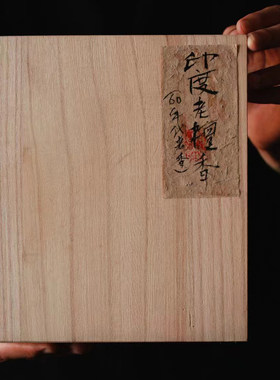 印度老檀香
(60年代老香)